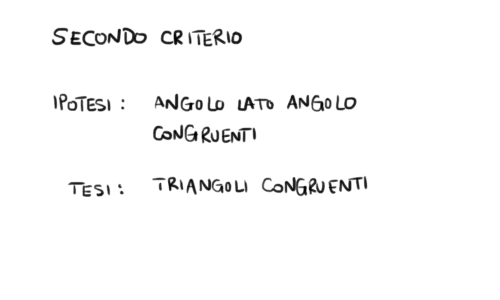 SECONDO CRITERIO
IPOTESI: ANGOLO LATO ANGOLO
CONGRUENTI
TESI: TRIANGOLI CONGRUENTI